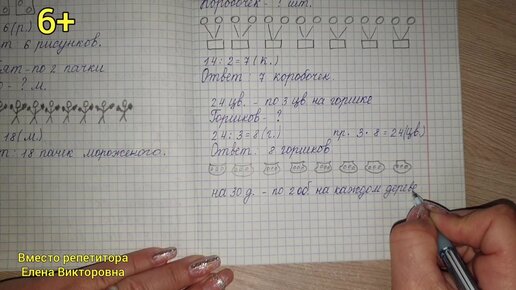 6+
6(р.)
т 6 рисунков.
ят - по 2 пачки
- ? м.
18(м.)
т: 18 пачек мороженого.
Коробочек - ? шт.
14 : 2 = 7 (к.)
Ответ: 7 коробочек.
24 цв. - по 3 цв. на горшке
Горшков - ?
24 : 3 = 8 (г.) пр. 3 · 8 = 24 (цв.)
Ответ: 8 горшков.
на 30 д. - по 2 об на каждом дереве
Вместо репетитора
Елена Викторовна